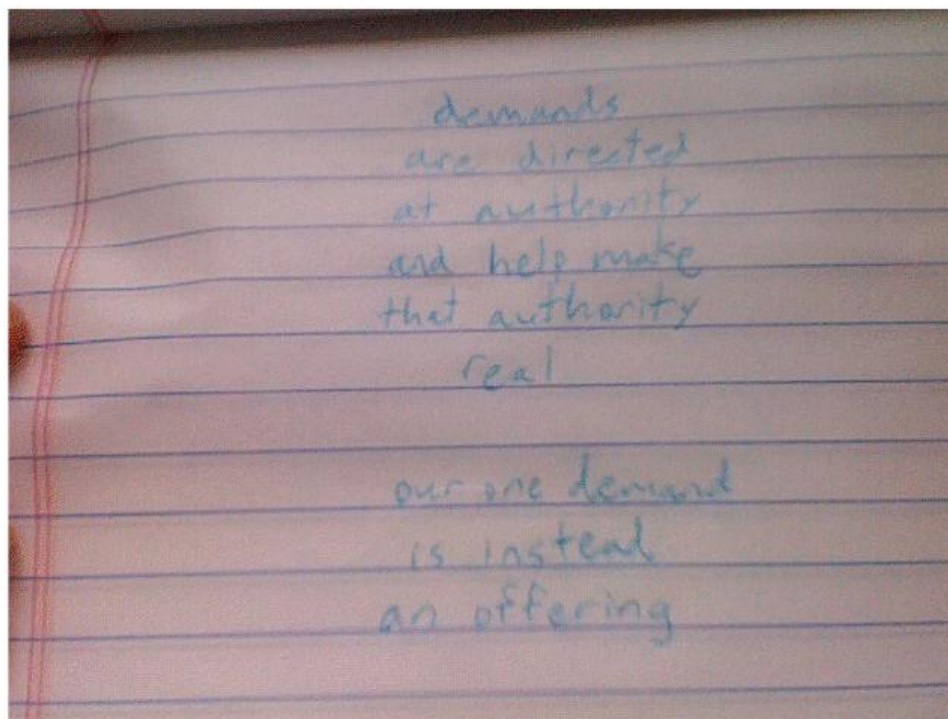 demands
are directed
at authority
and help make
that authority
real
our one demand
is instead
an offering